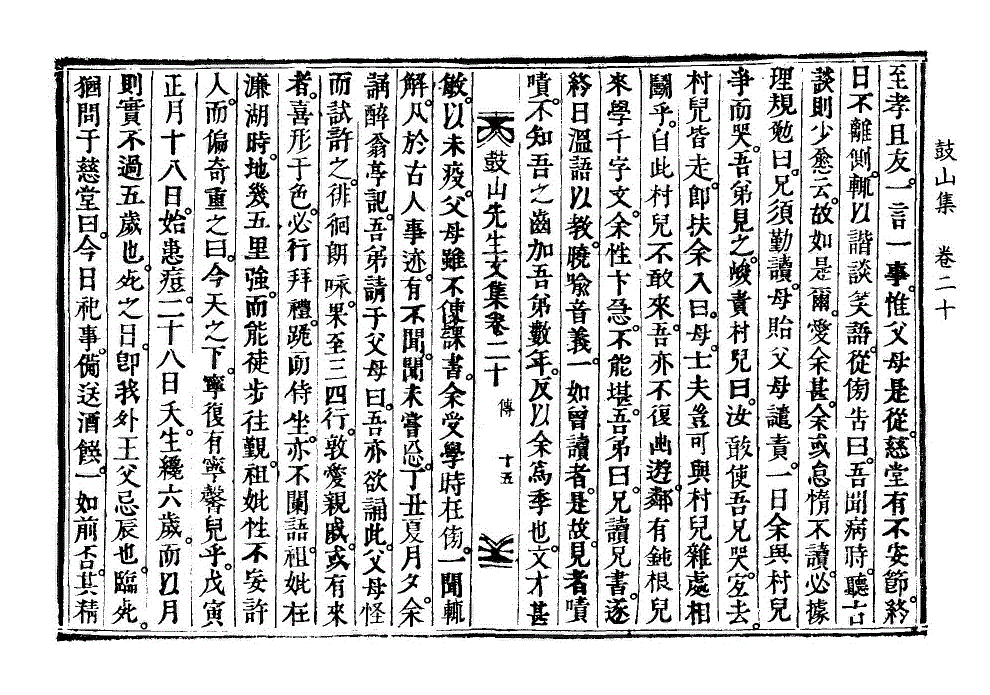 鼓山集　卷二十
至孝且友。一言一事。惟父母是從。慈堂有不安節。終
日不離側。輒以諧談笑語。從傍告曰。吾聞病時。聽古
談則少愈云。故如是爾。愛余甚。余或怠惰不讀。必據
理規勉曰。兄須勤讀。毋貽父母譴責。一日余與村兒
爭而哭。吾弟見之。峻責村兒曰。汝敢使吾兄哭。宜去。
村兒皆走。卽扶余入曰。毋士夫豈可與村兒雜處相
鬪乎。自此村兒不敢來。吾亦不復出遊。鄰有鈍根兒
來學千字文。余性卞急。不能堪。吾弟曰。兄讀兄書。遂
終日溫語以敎。曉喩音義。一如曾讀者。是故見者嘖
嘖。不知吾之齒加吾弟數年。反以余爲季也。文才甚
鼓山先生文集卷二十　傳　十五
敏。以未疫。父母雖不使課書。余受學時在傍。一聞輒
解。凡於古人事迹。有不聞。聞未嘗忘。丁丑夏月夕。余
誦醉翁亭記。吾弟請于父母曰。吾亦欲誦此。父母怪
而試許之。徘徊朗咏。果至三四行。敦愛親戚。或有來
者。喜形于色。必行拜禮。跪而侍坐。亦不闌語。祖妣在
濂湖時。地幾五里强。而能徒步往覲。祖妣性不妄許
人。而偏奇重之曰。今天之下。寧復有寧馨兒乎。戊寅
正月十八日。始患痘。二十八日夭。生纔六歲。而以月
則實不過五歲也。死之日。卽我外王父忌辰也。臨死。
猶問于慈堂曰。今日祀事。備送酒饌。一如前否。其精